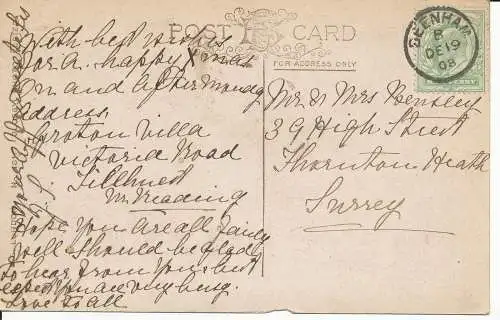 POST CARD
FOR ADDRESS ONLY
BEENHAM
B
DE 19
08
With best wishes
for a happy Xmas
On and after Monday
address
Groton Villa
Victoria Road
Tillhurst
Nr Reading
Hope you are all fairly
well should be glad
to hear from you but
expect you are very busy
Love to all
Mr & Mrs Bensley
39 High Street
Thornton Heath
Surrey